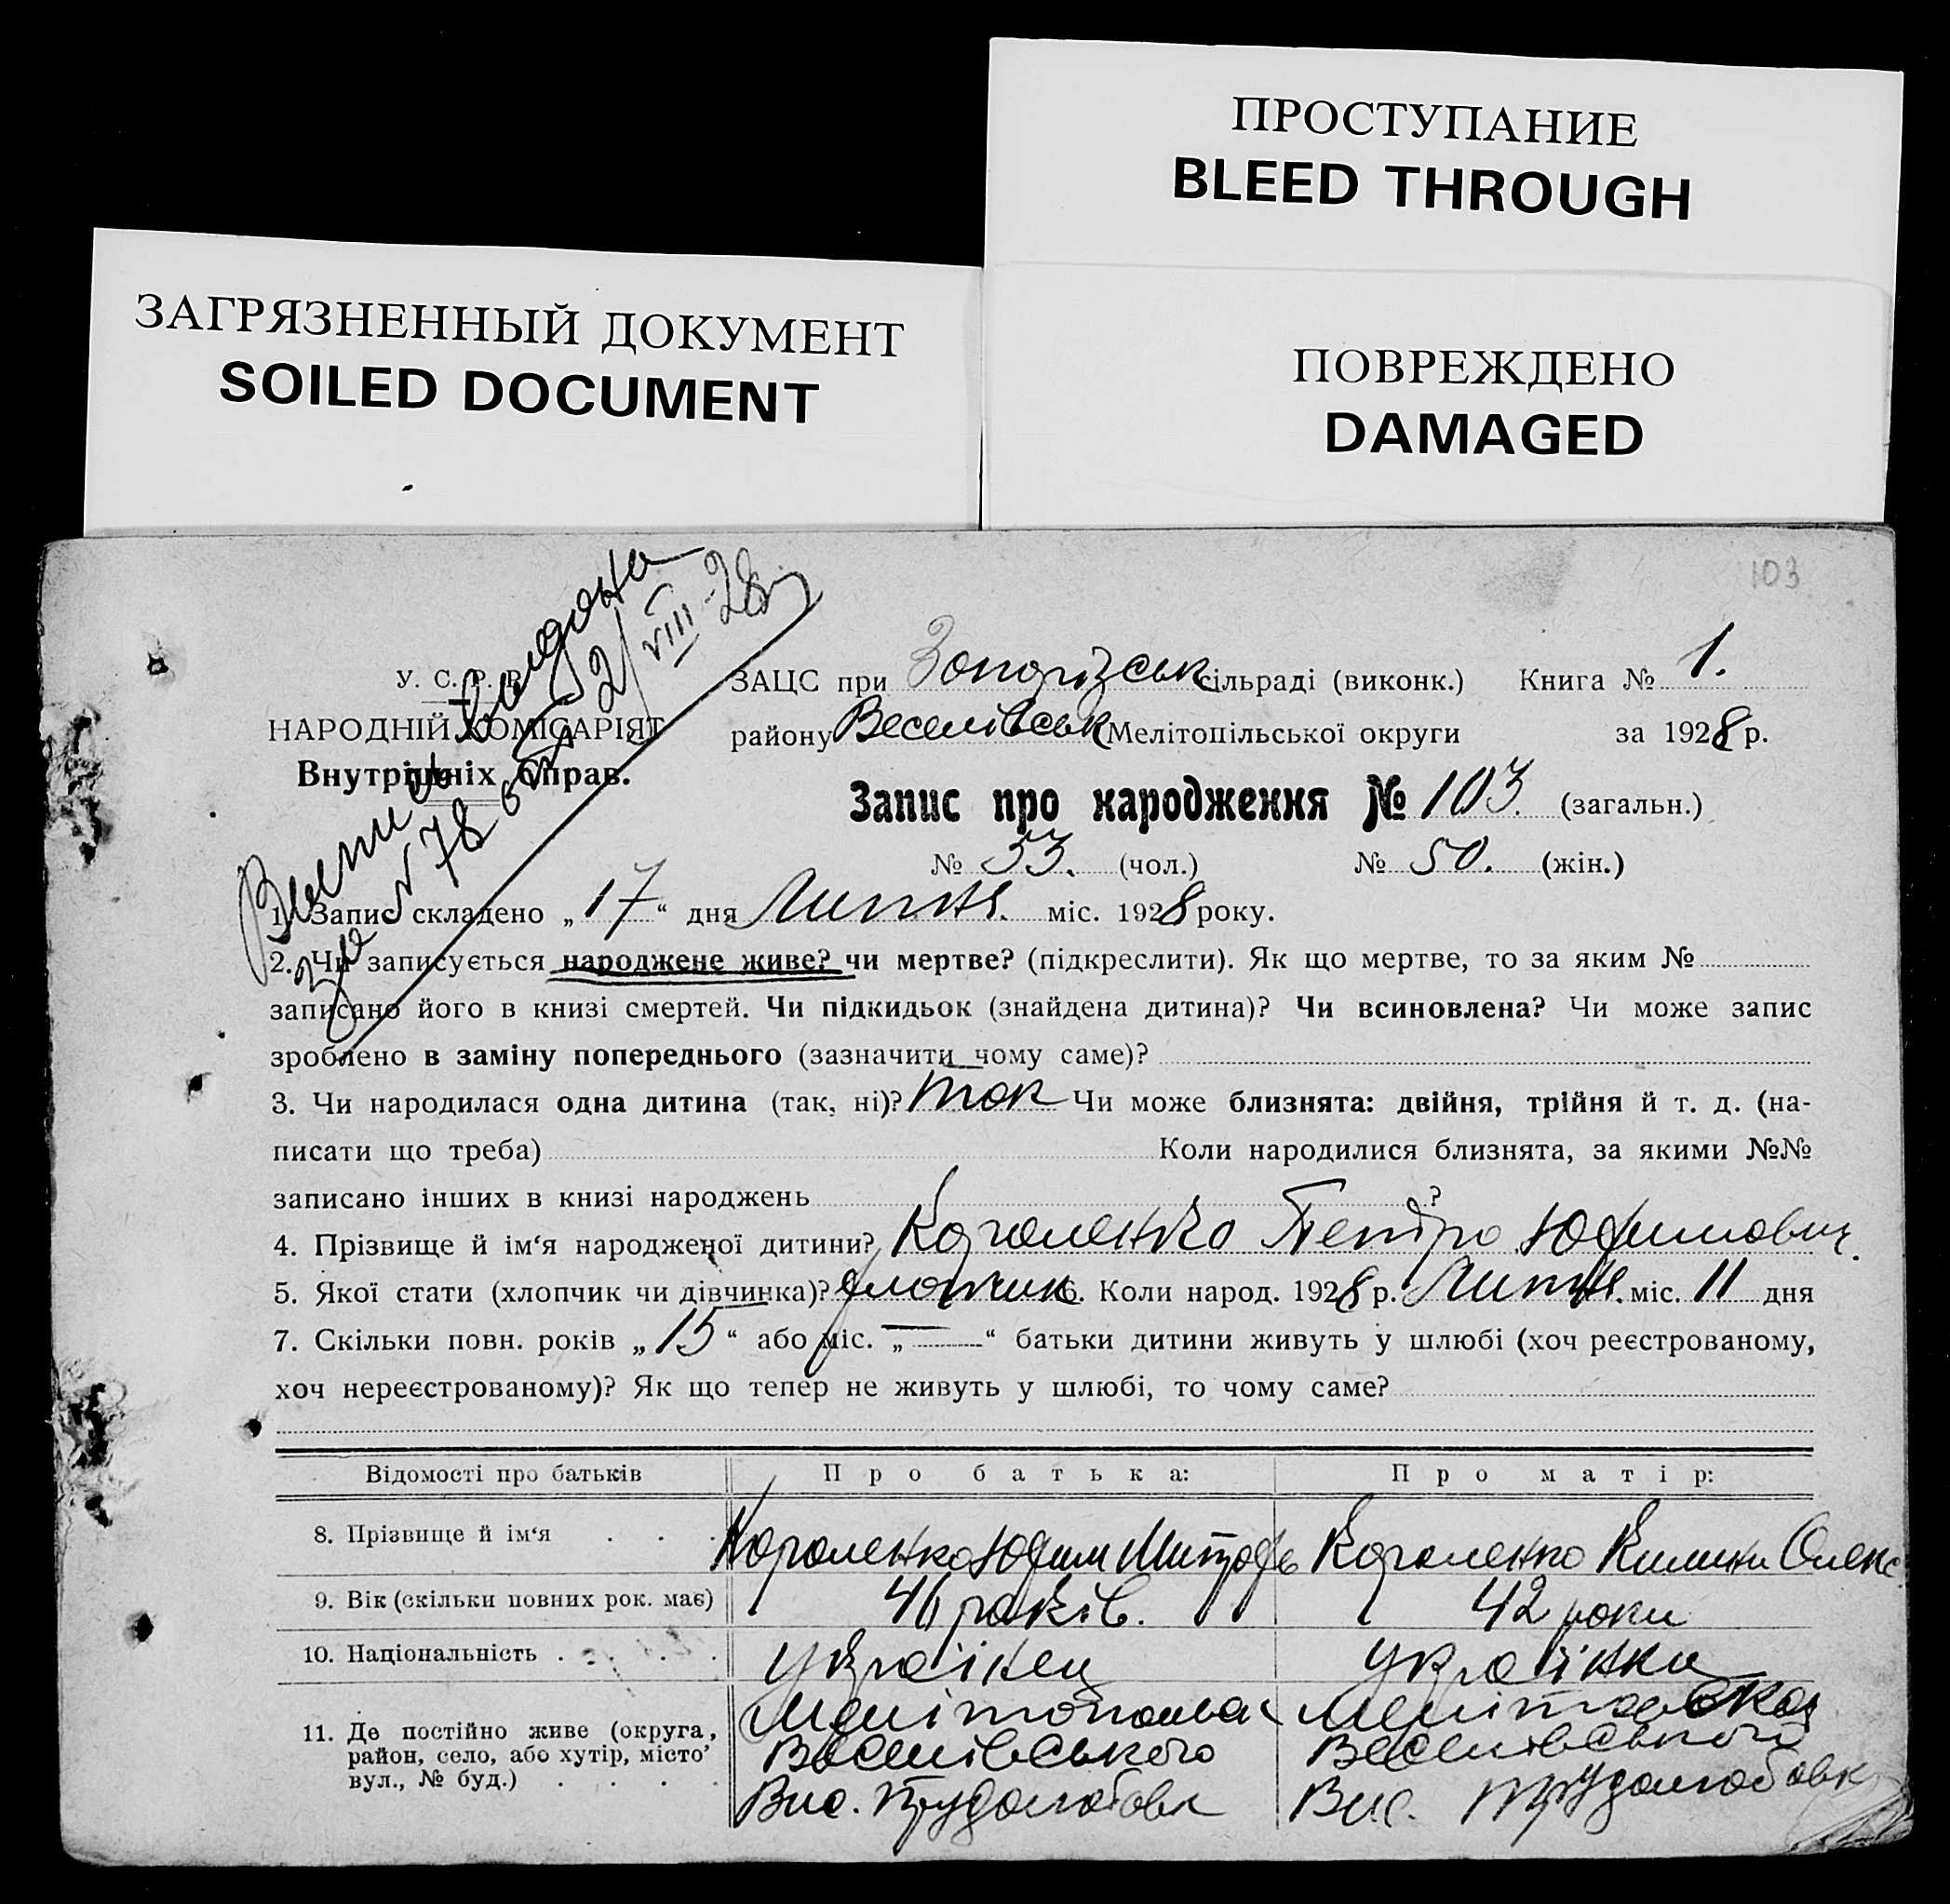 ПРОСТУПАНИЕ
BLEED THROUGH
ЗАГРЯЗНЕННЫЙ ДОКУМЕНТ
SOILED DOCUMENT
ПОВРЕЖДЕНО
DAMAGED
103
У. С. Р. Р.
НАРОДНІЙ КОМІСАРІЯТ
Внутрішніх Справ.
Выпись выдона
за № 78 2/VIII-28
ЗАЦС при сільраді (виконк.) Книга № 1.
району Веселівськ Мелітопільської округи за 1928 р.
Запис про народження № 103. (загальн.)
№ 53. (чол.) № 50. (жін.)
1. Запис складено „17“ дня Липня. міс. 1928 року.
2. Чи записується народжене живе? чи мертве? (підкреслити). Як що мертве, то за яким №
записано його в книзі смертей. Чи підкидьок (знайдена дитина)? Чи всиновлена? Чи може запис
зроблено в заміну попереднього (зазначити чому саме)?
3. Чи народилася одна дитина (так, ні)? так Чи може близнята: двійня, трійня й т. д. (на-
писати що треба) Коли народилися близнята, за якими №№
записано інших в книзі народжень ?
4. Прізвище й ім‘я народженої дитини? Короленко Петро Юфимович.
5. Якої стати (хлопчик чи дівчинка)? хлопчик 6. Коли народ. 1928 р. Липня. міс. 11 дня
7. Скільки повн. років „15“ або міс. „—“ батьки дитини живуть у шлюбі (хоч реєстрованому,
хоч нереєстрованому)? Як що тепер не живуть у шлюбі, то чому саме?
Відомості про батьків Про батька: Про матір:
8. Прізвище й ім‘я Короленко Юфим Митроф Короленко Килина Олекс
9. Вік (скільки повних рок. має) 46 років. 42 роки
10. Національність Українец Українка
11. Де постійно живе (округа,
район, село, або хутір, місто,
вул., № буд.)
Веселівського Веселівського
Вис. Трудолюбовк Вис. Трудолюбовк